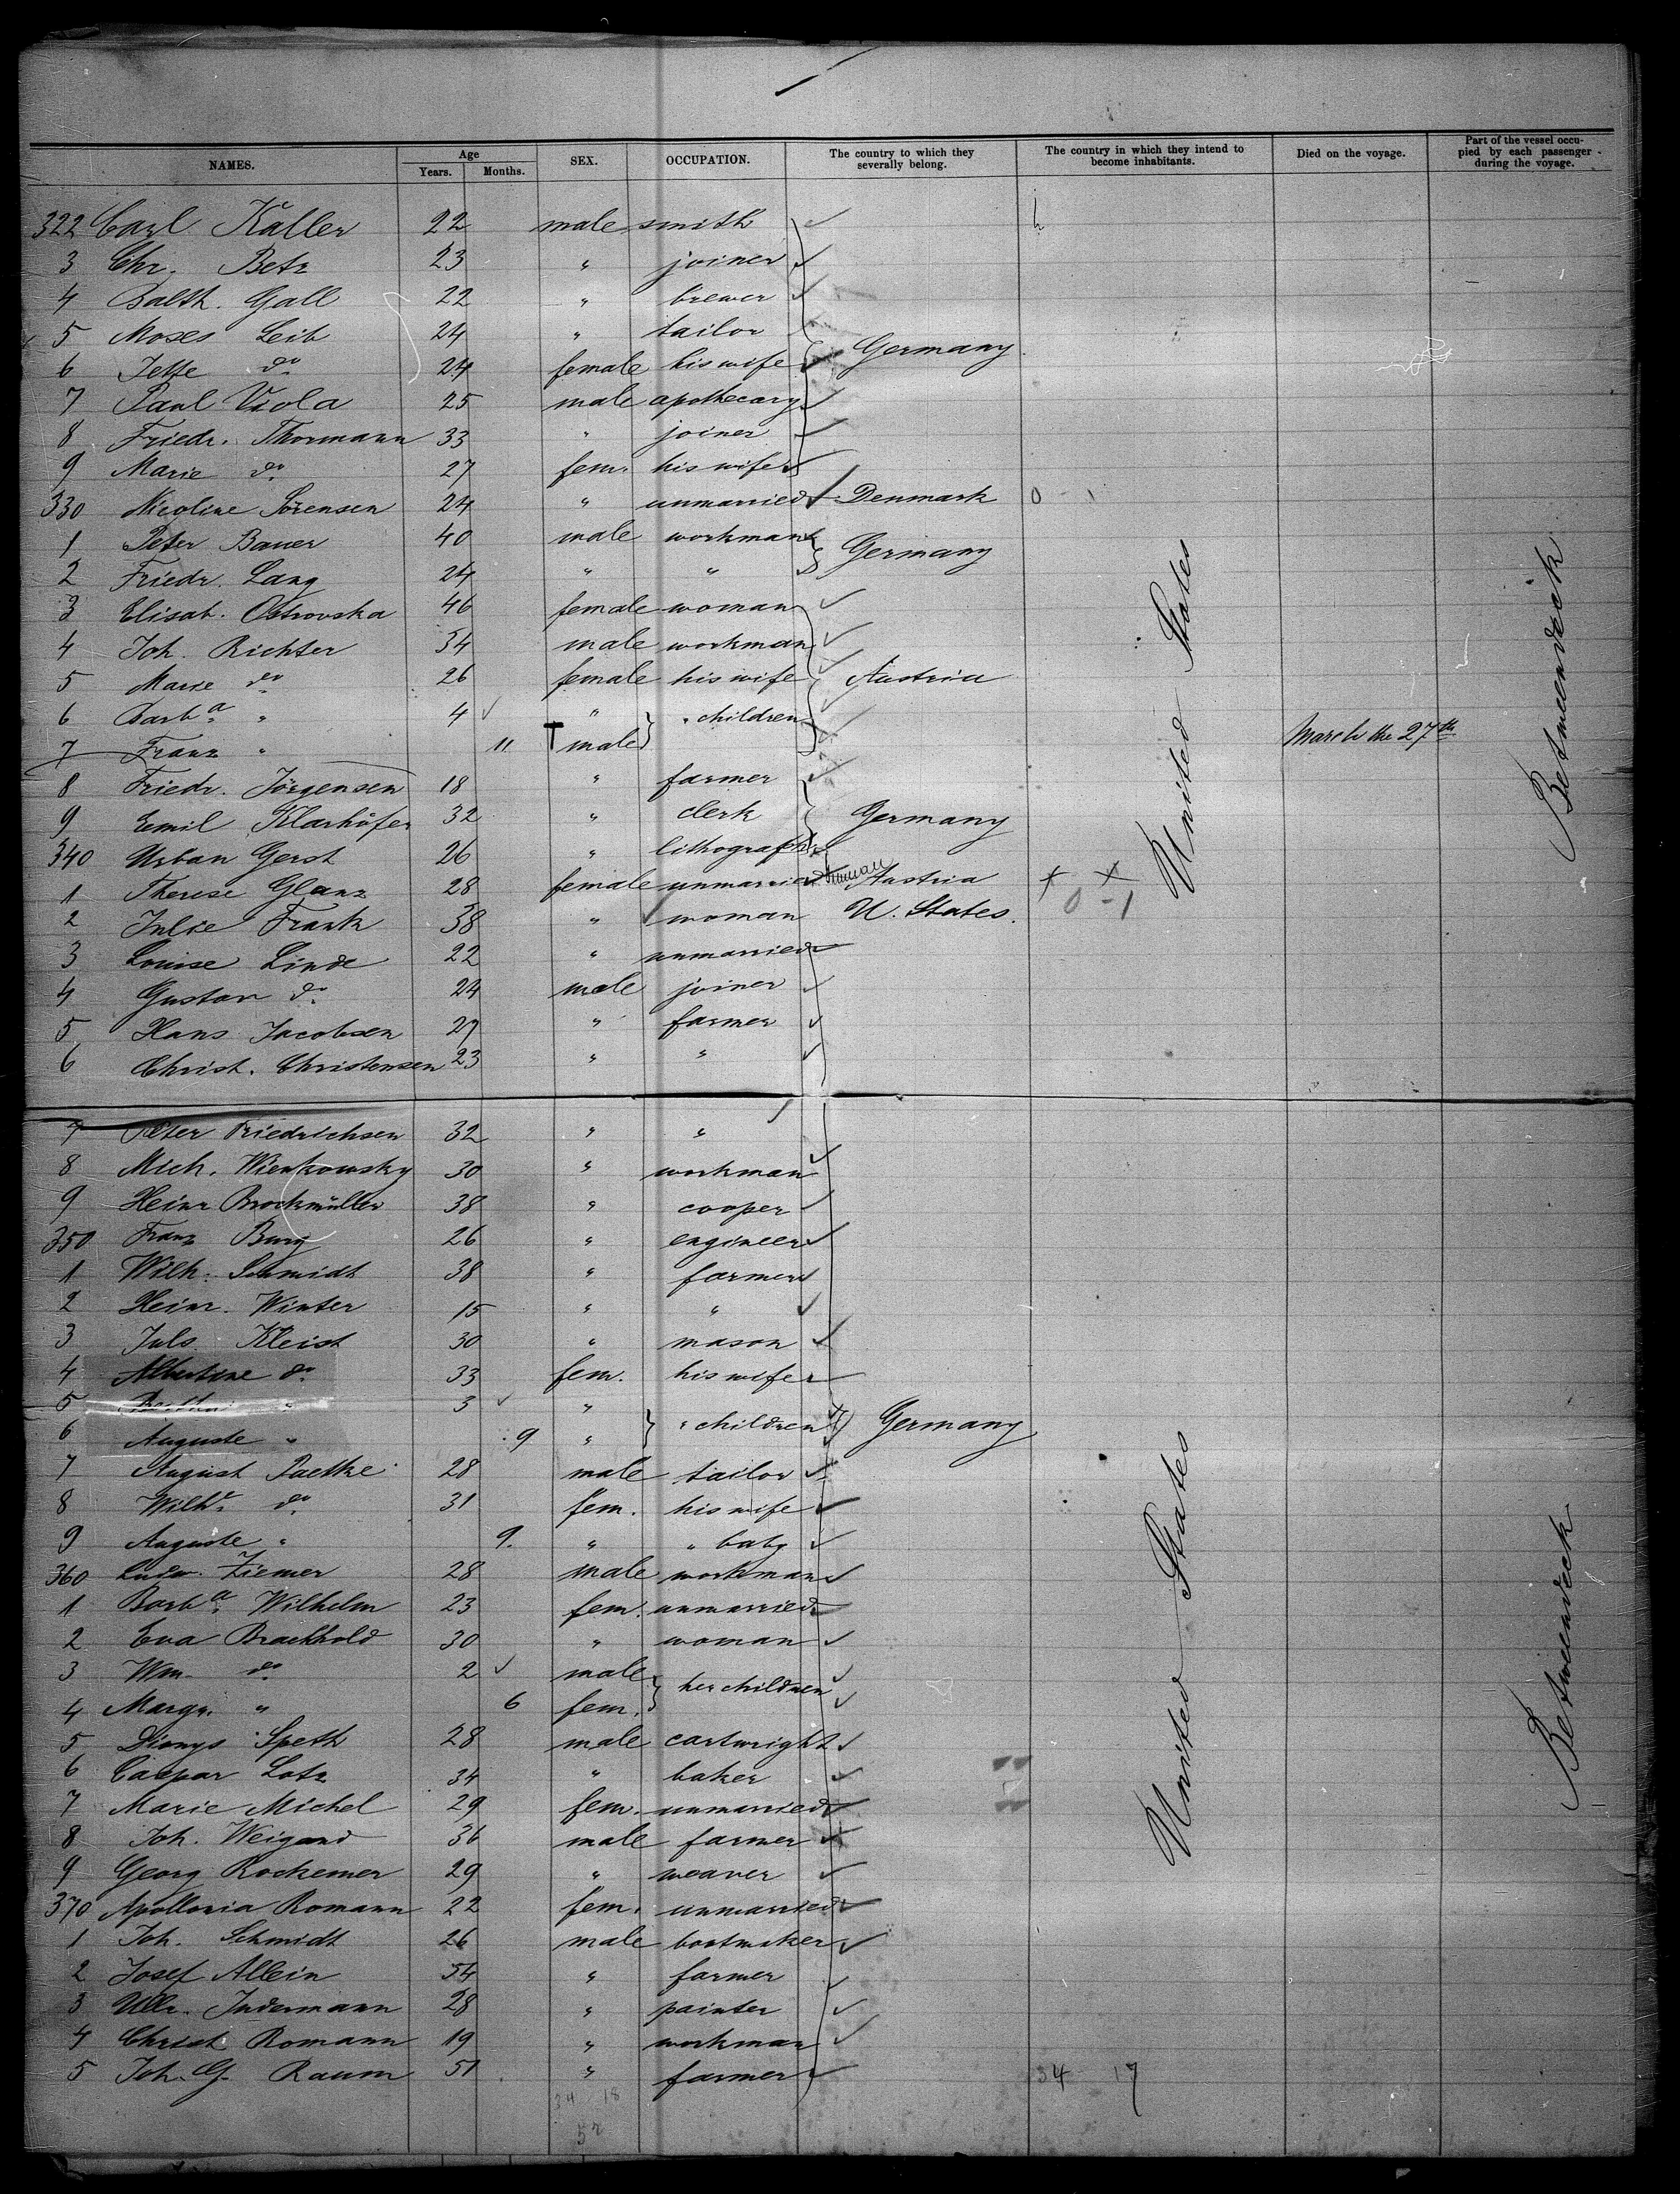 NAMES. Age Years. Months. SEX. OCCUPATION. The country to which they severally belong. The country in which they intend to become inhabitants. Died on the voyage. Part of the vessel occupied by each passenger during the voyage.
322 Carl Kaller 22 male smith
3 Chr. Betz 23 " joiner
4 Balth. Gall 22 " brewer
5 Moses Leib 24 " tailor
6 Jette do. 24 female his wife Germany
7 Paul Viola 25 male apothecary
8 Friedr. Thormann 33 " joiner
9 Marie do. 27 fem. his wife
330 Nicoline Sörensen 24 " unmarried Denmark 0
1 Peter Bauer 40 male workman Germany
2 Friedr. Lang 24 " "
3 Elisab. Ostrovska 46 female woman
4 Joh. Richter 34 male workman
5 Marie do. 26 female his wife Austria
6 Barba. " 4 " " children
7 Franz " 11 male March the 27th
8 Friedr. Jörgensen 18 " farmer
9 Emil Klarhöfer 32 " clerk Germany
340 Urban Gerst 26 " lithograph
1 Therese Glanz 28 female unmarried Austria
2 Julie Frank 38 " woman U. States. 0 - 1
3 Louise Linde 22 " unmarried
4 Gustav do. 24 male joiner
5 Hans Jacobsen 27 " farmer
6 Christ. Christensen 23 " "
United States
Betweendeck
7 Peter Friedrichsen 32 " "
8 Mich. Wienkowsky 30 " workman
9 Heinr Brockmüller 38 " cooper
350 Franz Burg 26 " engineer
1 Wilh. Schmidt 38 " farmer
2 Heinr. Winter 15 " "
3 Juls. Kleist 30 " mason
4 Albertine do. 33 fem. his wife
5 " 3 "
6 Auguste " 9 " " children Germany
7 August Paetke 28 male tailor
8 Wilhe. do. 31 fem. his wife
9 Auguste " 9. " " baby
360 Ludw. Ziemer 28 male workman
1 Barba. Wilhelm 23 fem. unmarried
2 Eva Braekhold 30 " woman
3 Wm. do. 2 male her children
4 Margr. " 6 fem.
5 Dionys Speth 28 male cartwright
6 Caspar Lotz 34 " baker
7 Marie Michel 29 fem. unmarried
8 Joh. Weigand 36 male farmer
9 Georg Rockemer 29 " weaver
370 Apollonia Romann 22 fem. unmarried
1 Joh. Schmidt 26 male bootmaker
2 Josef Allein 54 " farmer
3 Ullr. Indermann 28 " painter
4 Christ Romann 19 " workman
5 Joh. G. Raum 51 " farmer 34 17
34 18
52
United States
Betweendeck